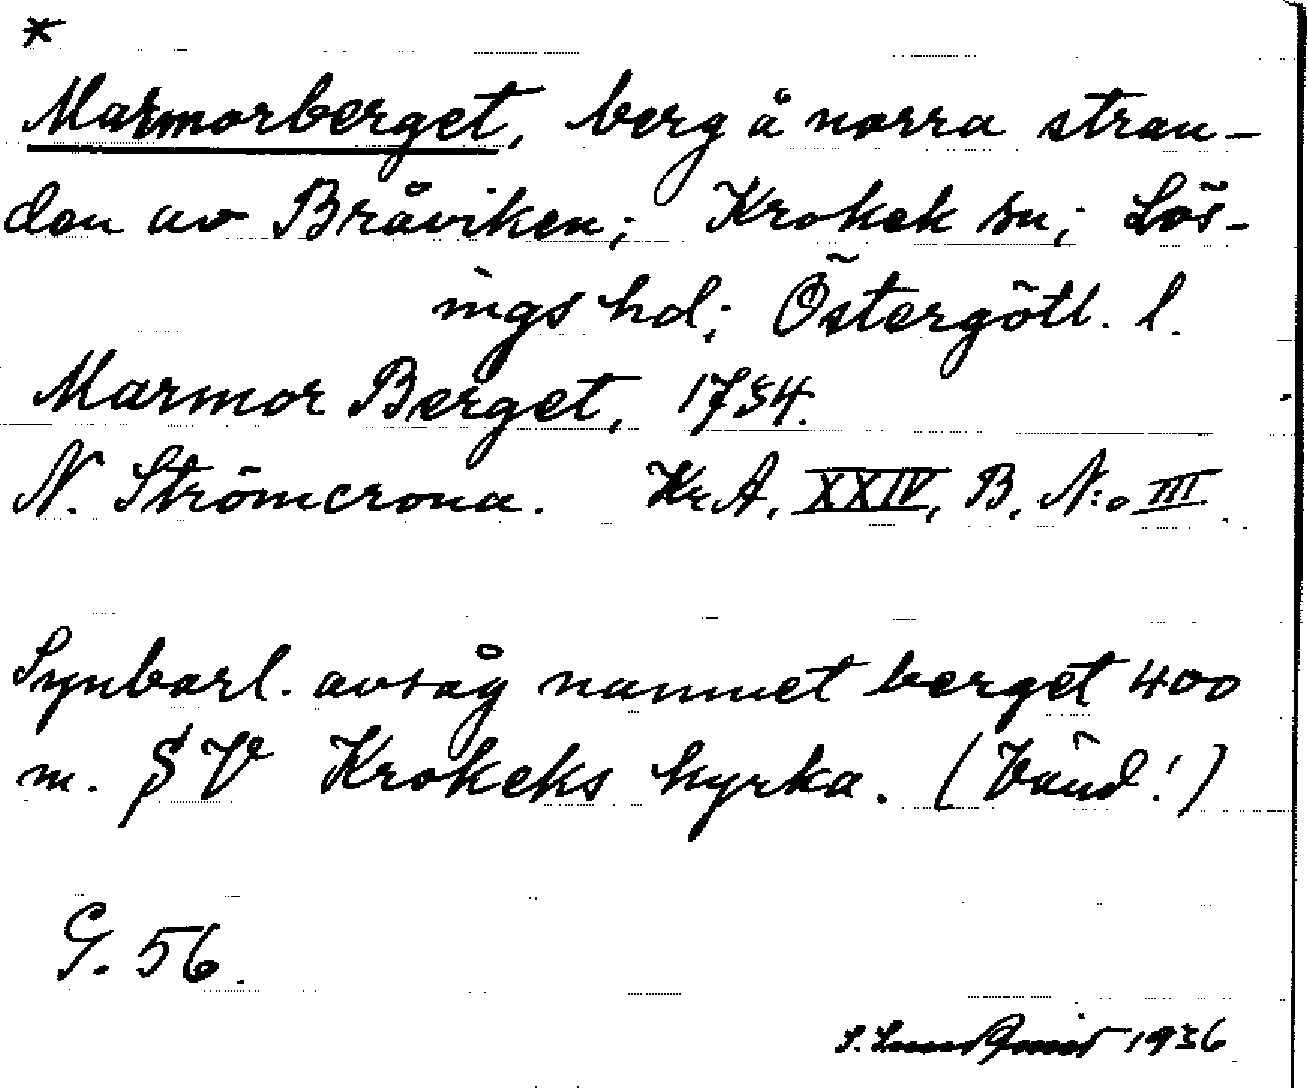 *
Marmorberget, berg å norra stran-
den av Bråviken; Krokek sn; Lös-
ings hd; Östergötl. l.
Marmor Berget, 1734.
N. Strömcrona. Kr.A. XXIV, B. N:o III.
Synbarl. avsåg namnet berget 400
m. SV Krokeks kyrka. (Vänd!)
G. 56.
1936